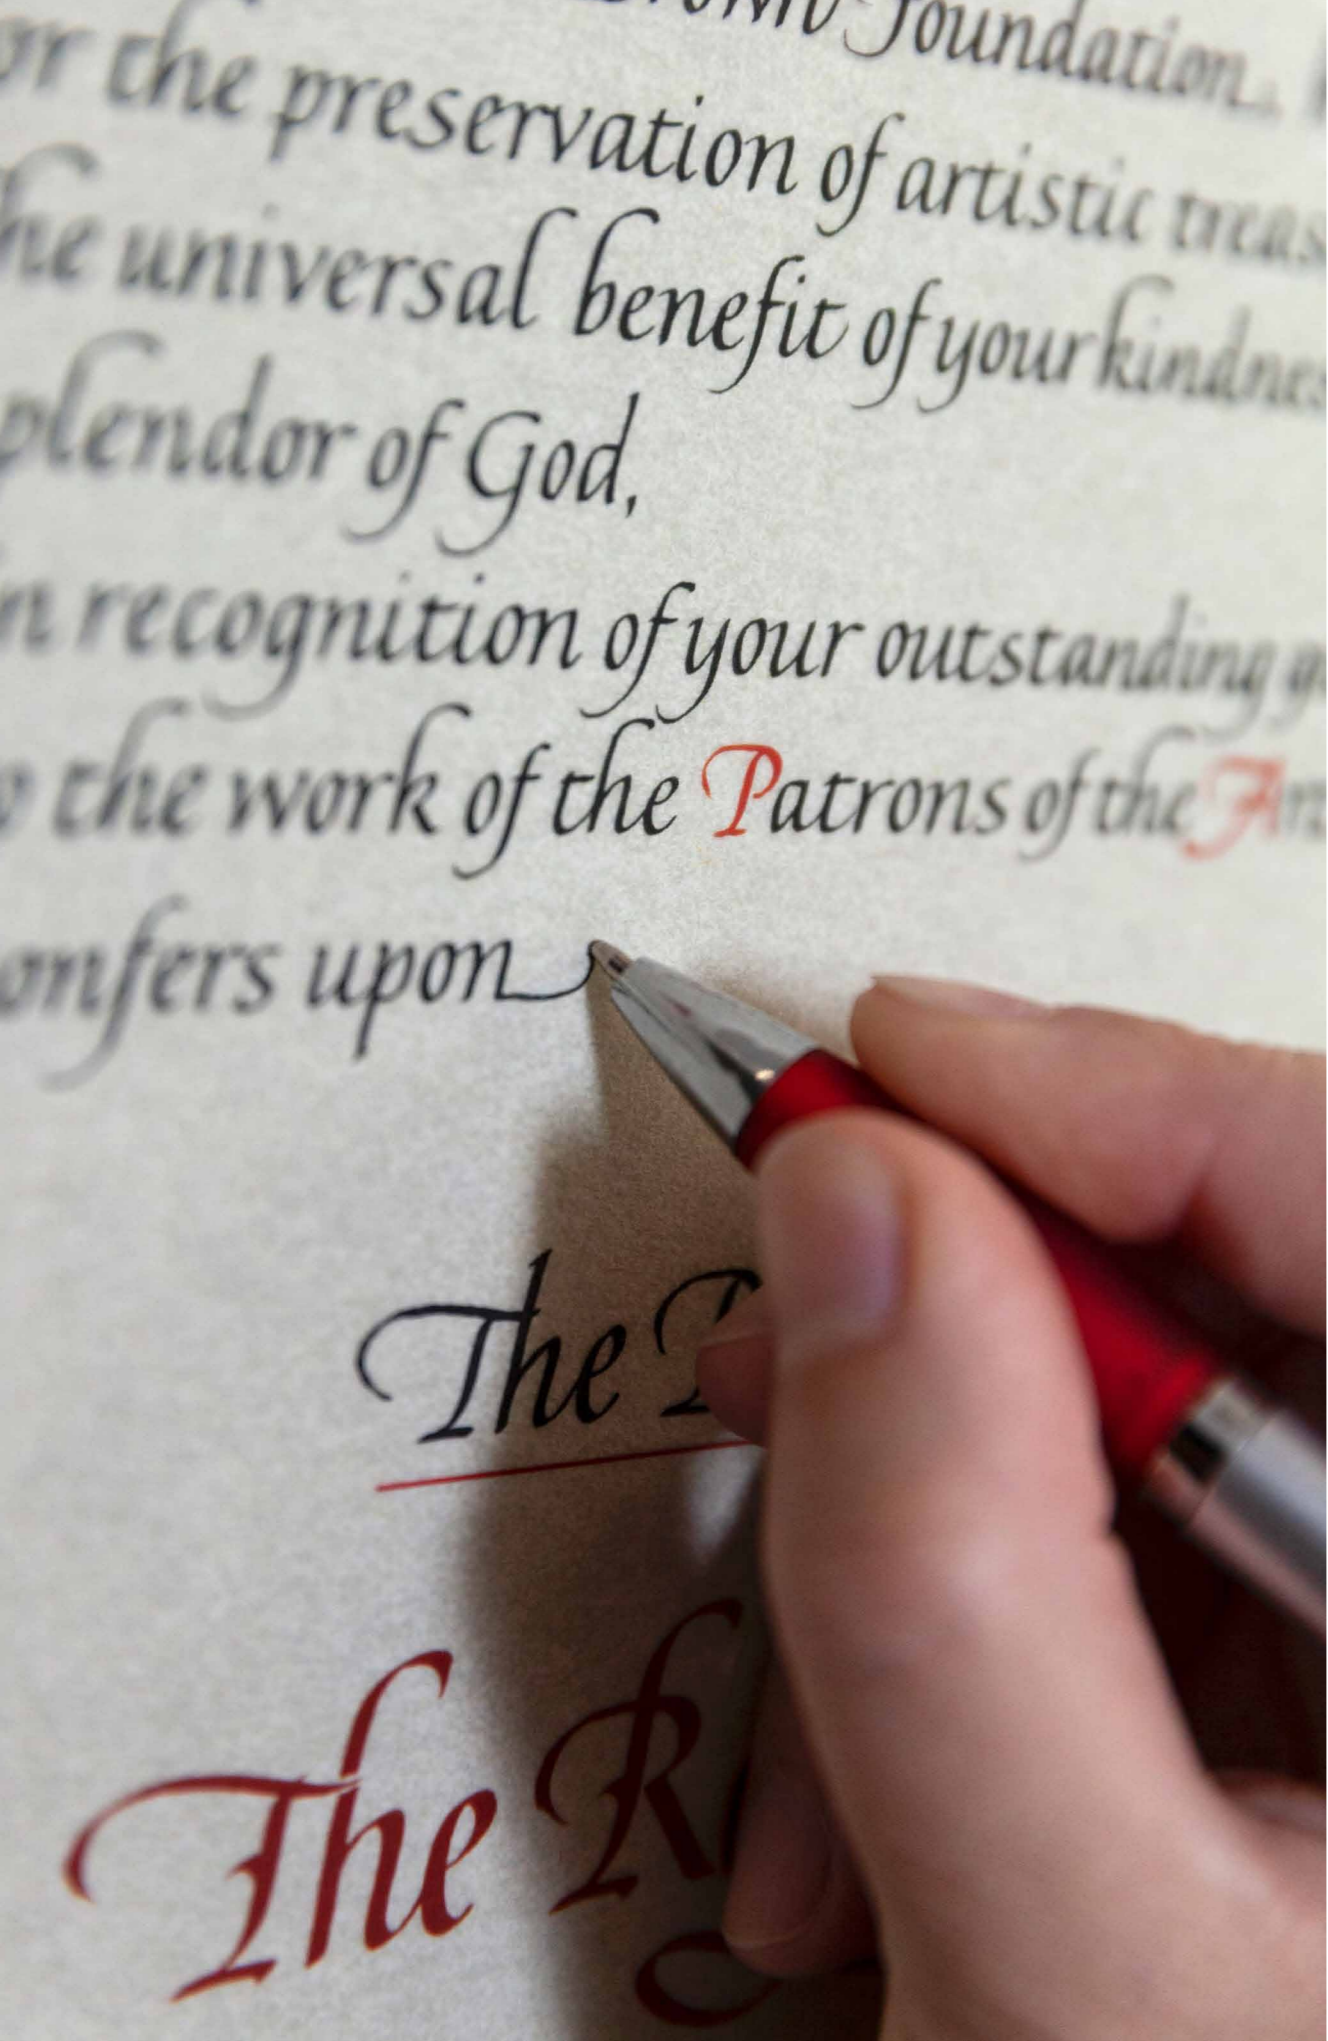 Foundation.
or the preservation of artistic treas
he universal benefit of your kindnes
plendor of God,
n recognition of your outstanding g
o the work of the Patrons of the Ar
onfers upon
The
The R